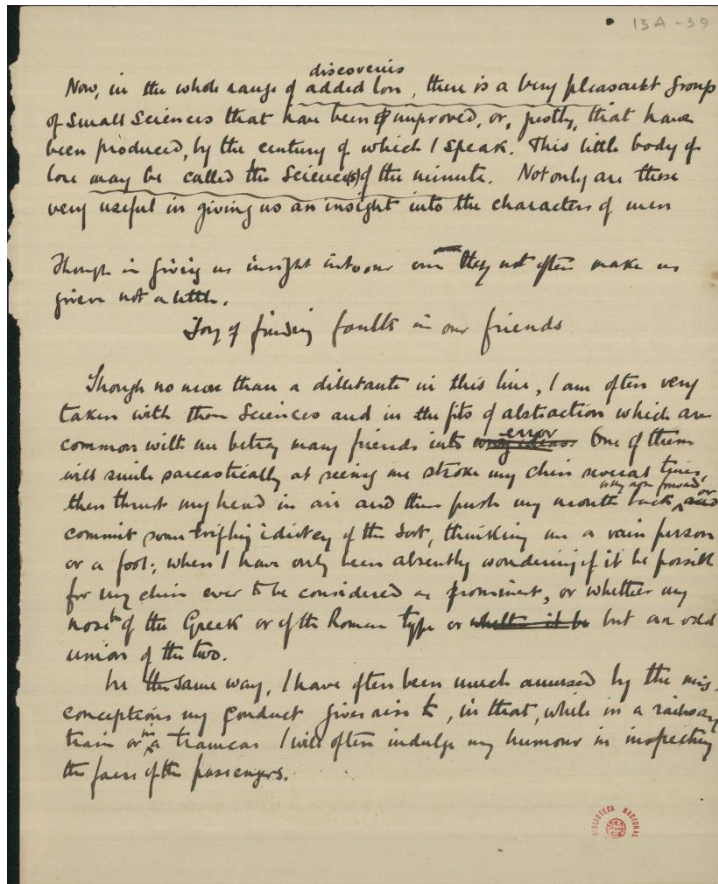 13A-39
discoveries
Now, in the whole range of added lore, there is a very pleasant group
of small sciences that have been improved, or, justly, that have
been produced, by the century of which I speak. This little body of
lore may be called the Science(s) of the minute. Not only are these
very useful in giving us an insight into the characters of men
Though in giving us insight into our own they not often make us
grieve not a little.
Joy of finding faults in our friends
Though no more than a dilletante in this line, I am often very
taken with these sciences and in the fits of abstraction which are
common with me betray many friends into error One of them
will smile sarcastically at seeing me stroke my chin several times,
then thrust my head in air and then push my mouth back, or
commit some trifling idiotcy of the sort, thinking me a vain person
or a fool; when I have only been absently wondering if it be possible
for my chin ever to be considered as prominent, or whether my
nose be of the Greek or of the Roman type or whether it be but an odd
union of the two.
In the same way, I have often been much amused by the mis-
conceptions my conduct gives rise to, in that, while in a railway
train or in a tramcar I will often indulge my humour in inspecting
the faces of the passengers.
BIBLIOTECA NACIONAL